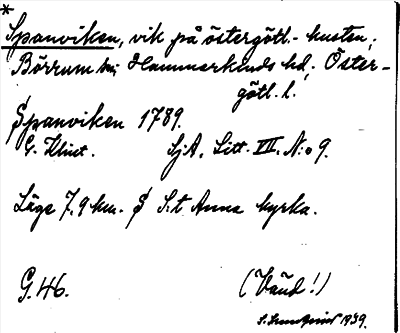 *
Spanviken, vik på östergötl.- kusten;
Börrum sn; Hammarkinds hd; Öster-
götl. l.
Spanviken 1789.
G. Klint. SjA. Litt. VII. N:o 9.
Läge 7,9 km. S S:t Anna kyrka.
G. 46. (Vänd!)
S. Lundqvist 1939.